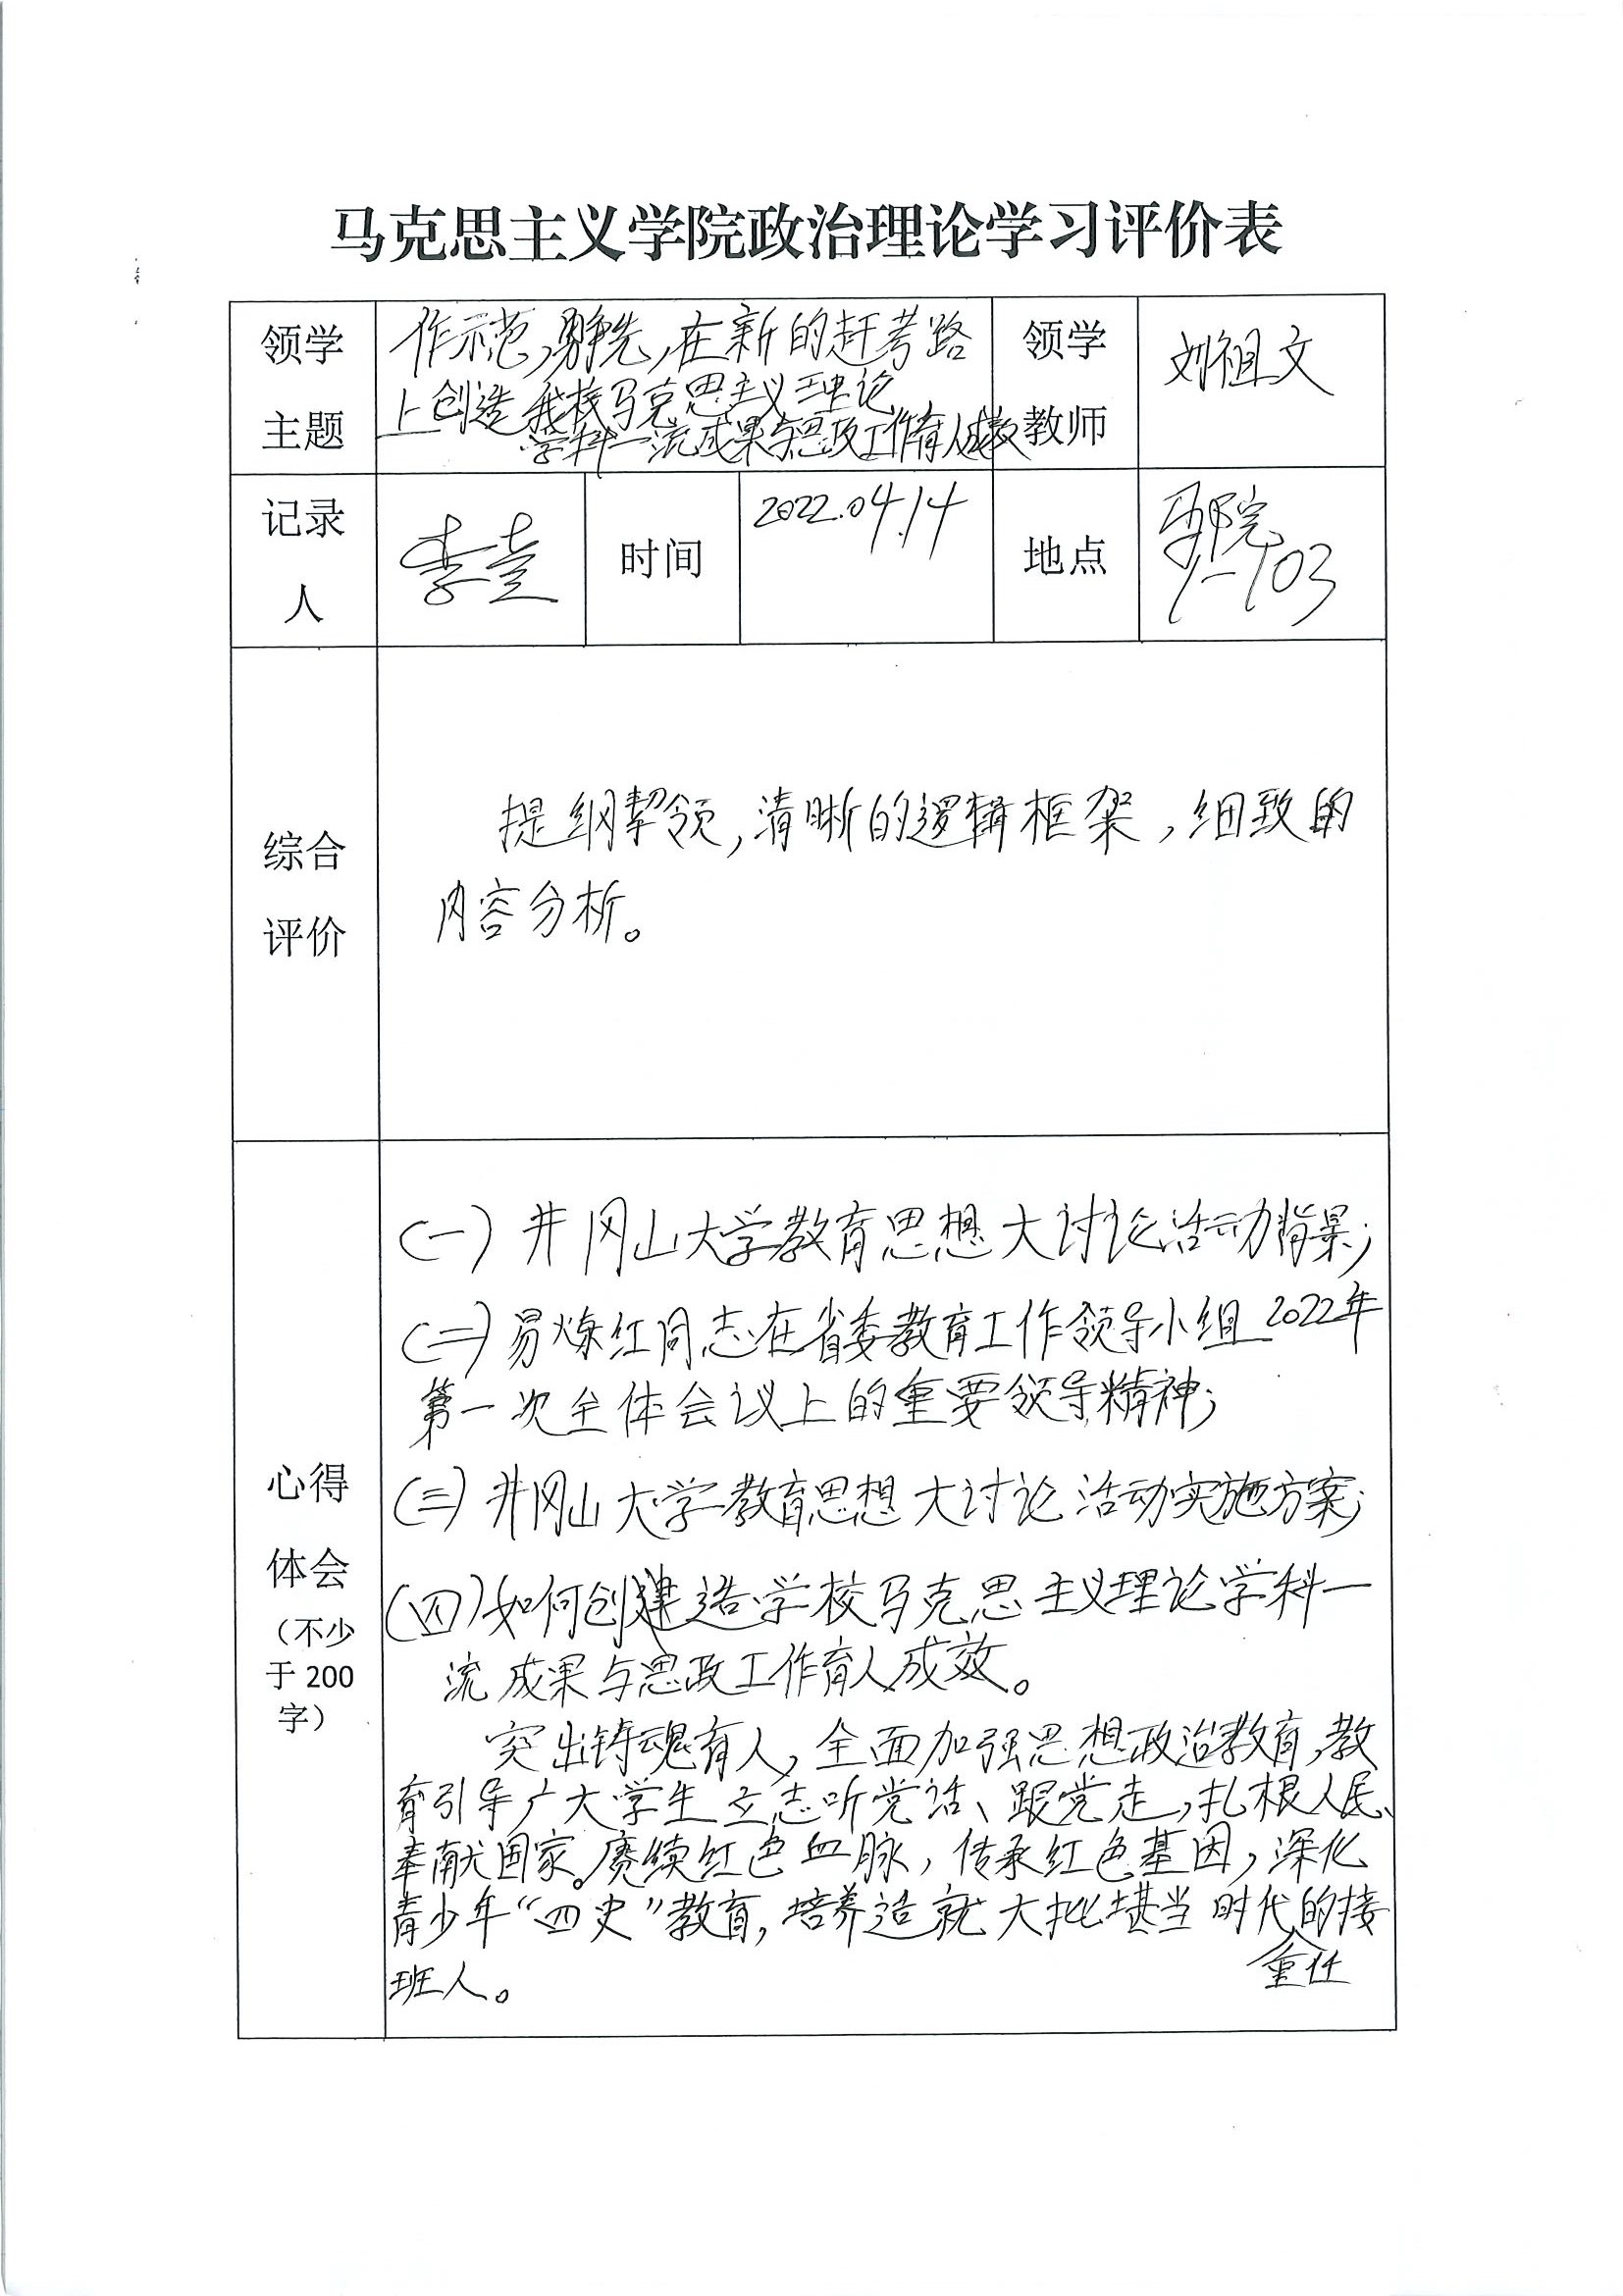 马克思主义学院政治理论学习评价表
领学
主题
作示范,勇争先,在新的赶考路
上创造我校马克思主义理论
学科一流成果与思政工作育人成效
领学
教师
刘祖文
记录
人
时间
2022.04.14
地点
马院
1-103
综合
评价
提纲挈领,清晰的逻辑框架,细致的
内容分析。
心得
体会
(不少
于 200
字)
(一)井冈山大学教育思想大讨论活动背景;
(二)易炼红同志在省委教育工作领导小组2022年
第一次全体会议上的重要领导精神;
(三)井冈山大学教育思想大讨论活动实施方案;
(四)如何创造学校马克思主义理论学科一
流成果与思政工作育人成效。
突出铸魂育人,全面加强思想政治教育,教
育引导广大学生立志听党话、跟党走,扎根人民、
奉献国家。赓续红色血脉,传承红色基因,深化
青少年“四史”教育,培养造就大批堪当时代重任的接
班人。